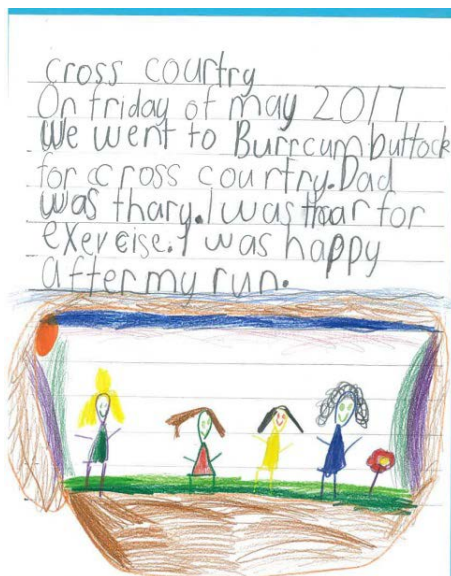 cross courtry
On friday of may 2017
We went to Burrcumbuttock
for cross courtry. Dad
was thary. I was thar for
exercise. I was happy
after my run.